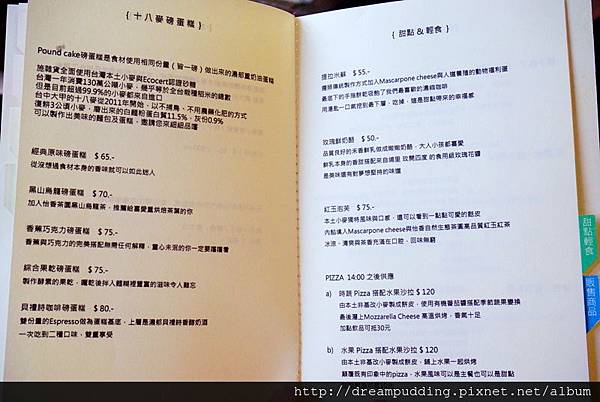 { 十八麥磅蛋糕 }
Pound cake磅蛋糕是食材使用相同份量（皆一磅）做出來的濃郁重奶油蛋糕
施雜貨全面使用台灣本土小麥與Ecocert認證砂糖
台灣一年消費130萬公噸小麥，幾乎等於全台栽種稻米的總數
但是目前超過99.9%的小麥都來自進口
台中大甲的十八麥從2011年開始，以不搶鳥、不用農藥化肥的方式
復耕3公頃小麥，磨出來的白麵粉蛋白質11.5%，灰份0.9%
可以製作出美味的麵包及蛋糕，邀請您來細細品嚐
經典原味磅蛋糕 $ 65.-
從沒想過食材本身的香味就可以如此迷人
黑山烏龍磅蛋糕 $ 70.-
加入怡香茶園黑山烏龍茶，推薦給喜愛重烘焙茶葉的你
香蕉巧克力磅蛋糕 $ 75.-
香蕉與巧克力的完美搭配無需任何解釋，童心未泯的你一定要嚐嚐看
綜合果乾磅蛋糕 $ 75.-
製作酵素的果乾，曬乾後拌入麵糊裡豐富的滋味令人難忘
貝禮詩咖啡磅蛋糕 $ 80.-
雙份量的Espresso做為蛋糕基底，上層是濃郁貝禮詩香醇奶酒
一次吃到二種口味，雙重享受
{ 甜點 & 輕食 }
提拉米蘇 $ 55.-
遵循傳統製作方式加入Mascarpone cheese與人道養殖的動物福利蛋
最底下的手指餅乾吸飽了我們最喜歡的濃縮咖啡
用湯匙一口氣挖到最下層，吃掉，這是甜點帶來的幸福感
玫瑰鮮奶酪 $ 50.-
品質良好的禾香鮮乳做成嫩嫩奶酪，大人小孩都喜愛
鮮乳本身的香甜搭配來自埔里 玫開四度 的食用級玫瑰花醬
是美味還有對夢想堅持的味道
紅玉泡芙 $ 75.-
本土小麥獨特風味與口感，還可以看到一點點可愛的麩皮
內餡填入Mascarpone cheese與怡香自然生態茶園高品質紅玉紅茶
冰涼、清爽與茶香充滿在口腔、回味無窮
PIZZA 14:00 之後供應
a) 時蔬 Pizza 搭配水果沙拉 $ 120
由本土非基改小麥製成餅皮，使用有機番茄醬搭配季節蔬果變換
最後灑上Mozzarella Cheese 高溫烘烤，香氣十足
加點飲品可抵30元
b) 水果 Pizza 搭配水果沙拉 $ 120
由本土非基改小麥製成餅皮，鋪上水果一起烘烤
顛覆既有印象中的pizza，水果風味可以是主餐也可以是甜點
甜點輕食
販售商品
http://dreampudding.pixnet.net/album